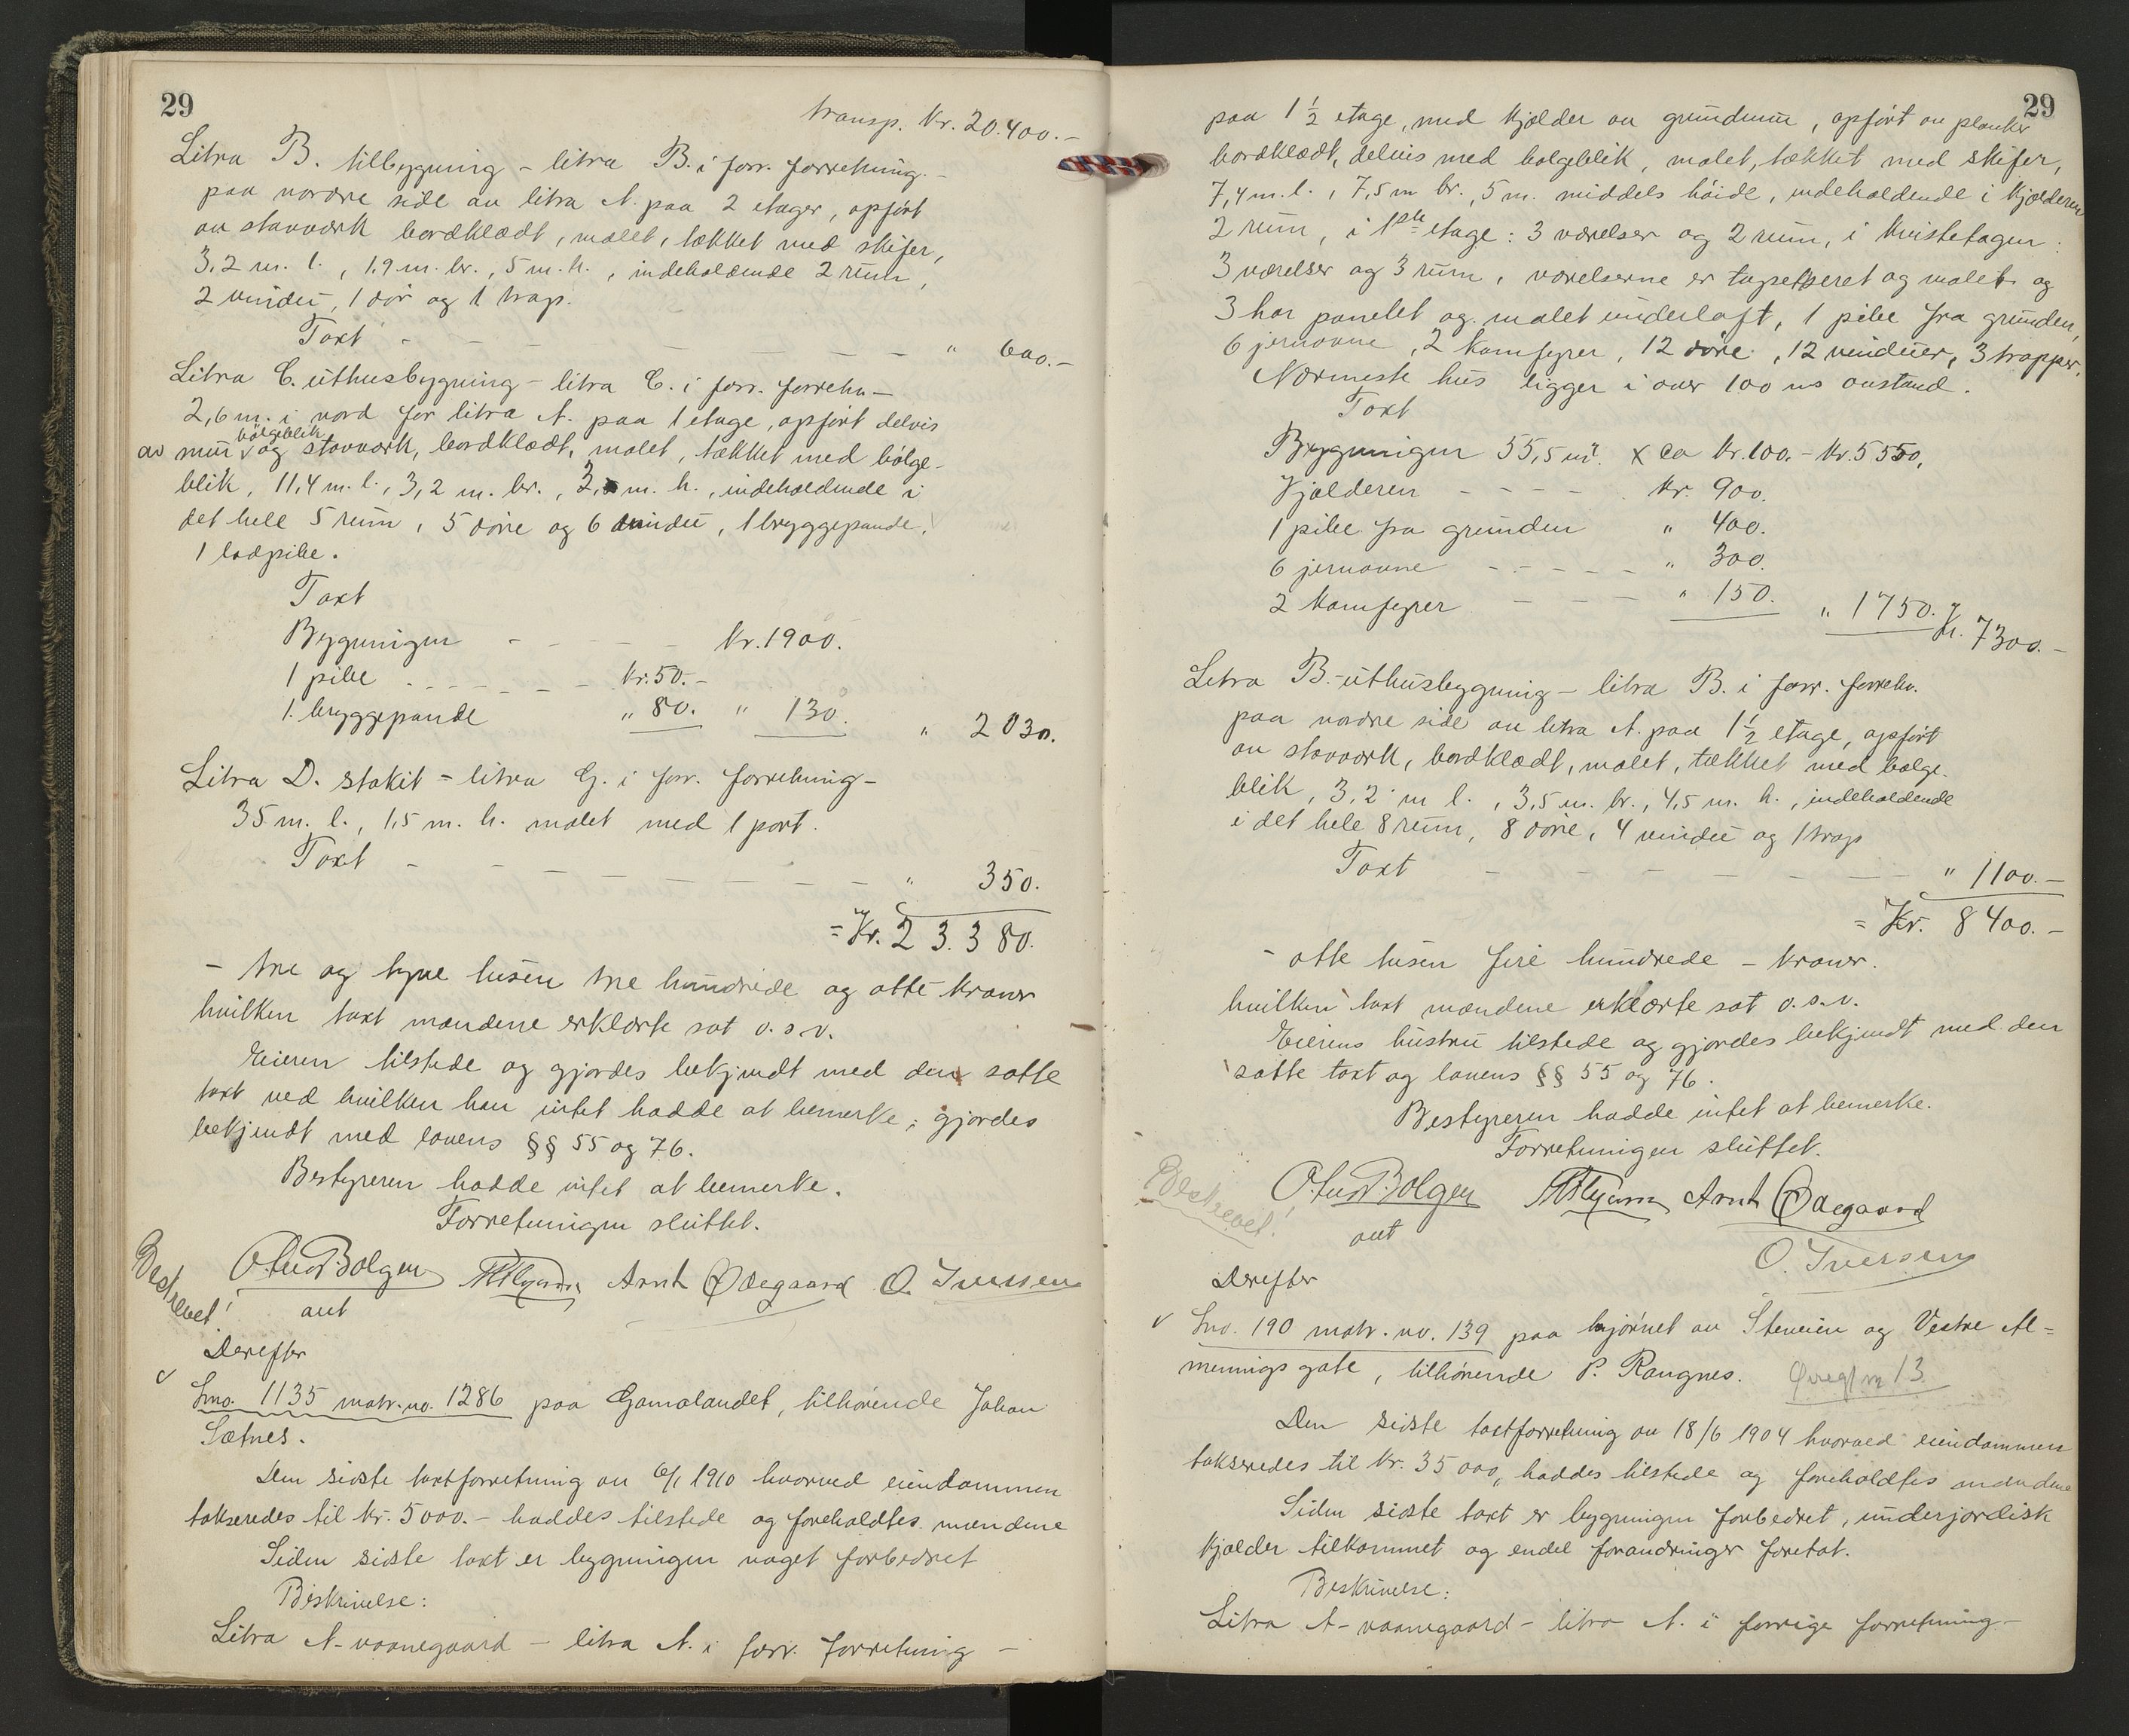 29
transp. Kr. 20.400.-
Litra B. tilbygning - litra B. i forr. forretning.-
paa nordre side av litra A. paa 2 etager, opført
av stavverk bordklædt, malet, tækket med skifer,
3,2 m. l., 1,9 m. br., 5 m. h., indeholdende 2 rum,
2 vindu, 1 dør og 1 trap.
Taxt - - - - - " 600.-
Litra C. uthusbygning - litra C. i forr. forretn.-
2,6 m. i nord for litra A. paa 1 etage, opført delvis
bølgeblik
av mur og stavverk, bordklædt, malet, tækket med bølge-
blik, 11,4 m. l., 3,2 m. br., 2, m. h., indeholdende i
det hele 5 rum, 5 døre og 6 vindu, 1 bryggepande,
1 lodpibe.
Taxt
Bygningen - - - - Kr. 1900.
1 pibe - - - - - - Kr. 50.-
1. bryggepande " 80. " 130. " 2030.
Litra D. stakit - litra G. i forr. forretning-
35 m. l., 1,5 m. h. malet med 1 port.
Taxt - - - - - - - " 350.
= Kr. 23.380.
- tre og tyve tusen tre hundrede og otte kroner
hvilken taxt mændene erklærte sat o. s. v.
Eieren tilstede og gjordes bekjendt med den satte
taxt ved hvilken han intet hadde at bemerke; gjordes
bekjendt med lovens §§ 55 og 76.
Bestyreren hadde intet at bemerke.
Forretningen sluttet.
Beskrevet! Bolgen Arnt Ødegaard O. Iversen
aut
Derefter
Lno. 1135 matr. no. 1286 paa Gomalandet, tilhørende Johan
Sætnes.
Den sidste taxtforretning av 6/1 1910 hvorved eiendommen
takseredes til kr. 5000.- haddes tilstede og foreholdtes mændene
Siden sidste taxt er bygningen noget forbedret
Beskrivelse:
Litra A - vaanegaard - litra A. i forr. forretning -
29
paa 1 1/2 etage, med kjælder av grundmur, opført av planker
bordklædt, delvis med bølgeblik, malet, tækket med skifer,
7,4 m. l., 7,5 m br., 5 m. middels høide, indeholdende i kjælderen
2 rum, i 1ste etage: 3 værelser og 2 rum, i kvistetagen:
3 værelser og 3 rum, værelserne er tapetseret og malet og
3 har panelet og malet underloft, 1 pibe fra grunden,
6 jernovne, 2 komfyrer, 12 døre, 12 vinduer, 3 trapper.
Nærmeste hus ligger i over 100 ms avstand.
Taxt
Bygningen 55,5 m². x ca Kr. 100.- Kr. 5550,
Kjælderen - - - - Kr. 900.
1 pibe fra grunden " 400.
6 jernovne - - - - - " 300.
2 komfyrer - - - - " 150. " 1750. Kr. 7300.-
Litra B. - uthusbygning - litra B. i forr. forretn.
paa nordre side av litra A. paa 1 1/2 etage, opført
av stavverk, bordklædt, malet, tækket med bølge-
blik, 3,2 m l., 3,5 m. br., 4,5 m. h., indeholdende
i det hele 8 rum, 8 døre, 4 vindu og 1 trap
Taxt - - - - - - - " 1100.-
= Kr. 8400.-
- otte tusen fire hundrede - kroner.
hvilken taxt mændene erklærte sat o. s. v.
Eierens hustru tilstede og gjordes bekjendt med den
satte taxt og lovens §§ 55 og 76.
Bestyreren hadde intet at bemerke.
Forretningen sluttet.
Beskrevet! Bolgen Arnt Ødegaard
aut O. Iversen
Derefter
Lno. 190 matr. no. 139 paa hjørnet av Steneien og Vestre Al=
mennings gate, tilhørende P. Rangnes. 13
Den sidste taxtforretning av 18/6 1904 hvorved eiendommen
takseredes til kr. 35000, haddes tilstede og foreholdtes mændene
Siden sidste taxt er bygningen forbedret, underjordisk
kjælder tilkommet og endel forandringer foretat.
Beskrivelse:
Litra A - vaanegaard - litra A. i forrige forretning -